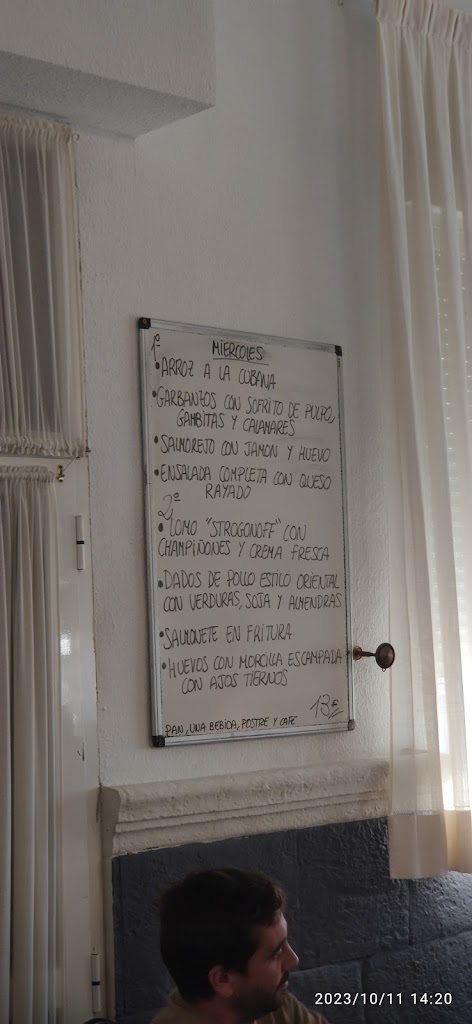 MIERCOLES
1º
• ARROZ A LA CUBANA
• GARBANZOS CON SOFRITO DE PULPO,
GAMBITAS Y CALAMARES
• SALMOREJO CON JAMON Y HUEVO
• ENSALADA COMPLETA CON QUESO
RAYADO
2º
• LOMO "STROGONOFF" CON
CHAMPIÑONES Y CREMA FRESCA
• DADOS DE POLLO ESTILO ORIENTAL
CON VERDURAS, SOJA Y ALMENDRAS
• SALMONETE EN FRITURA
• HUEVOS CON MORCILLA ESCAMPADA
CON AJOS TIERNOS
13€
PAN, UNA BEBIDA, POSTRE Y CAFE
2023/10/11 14:20